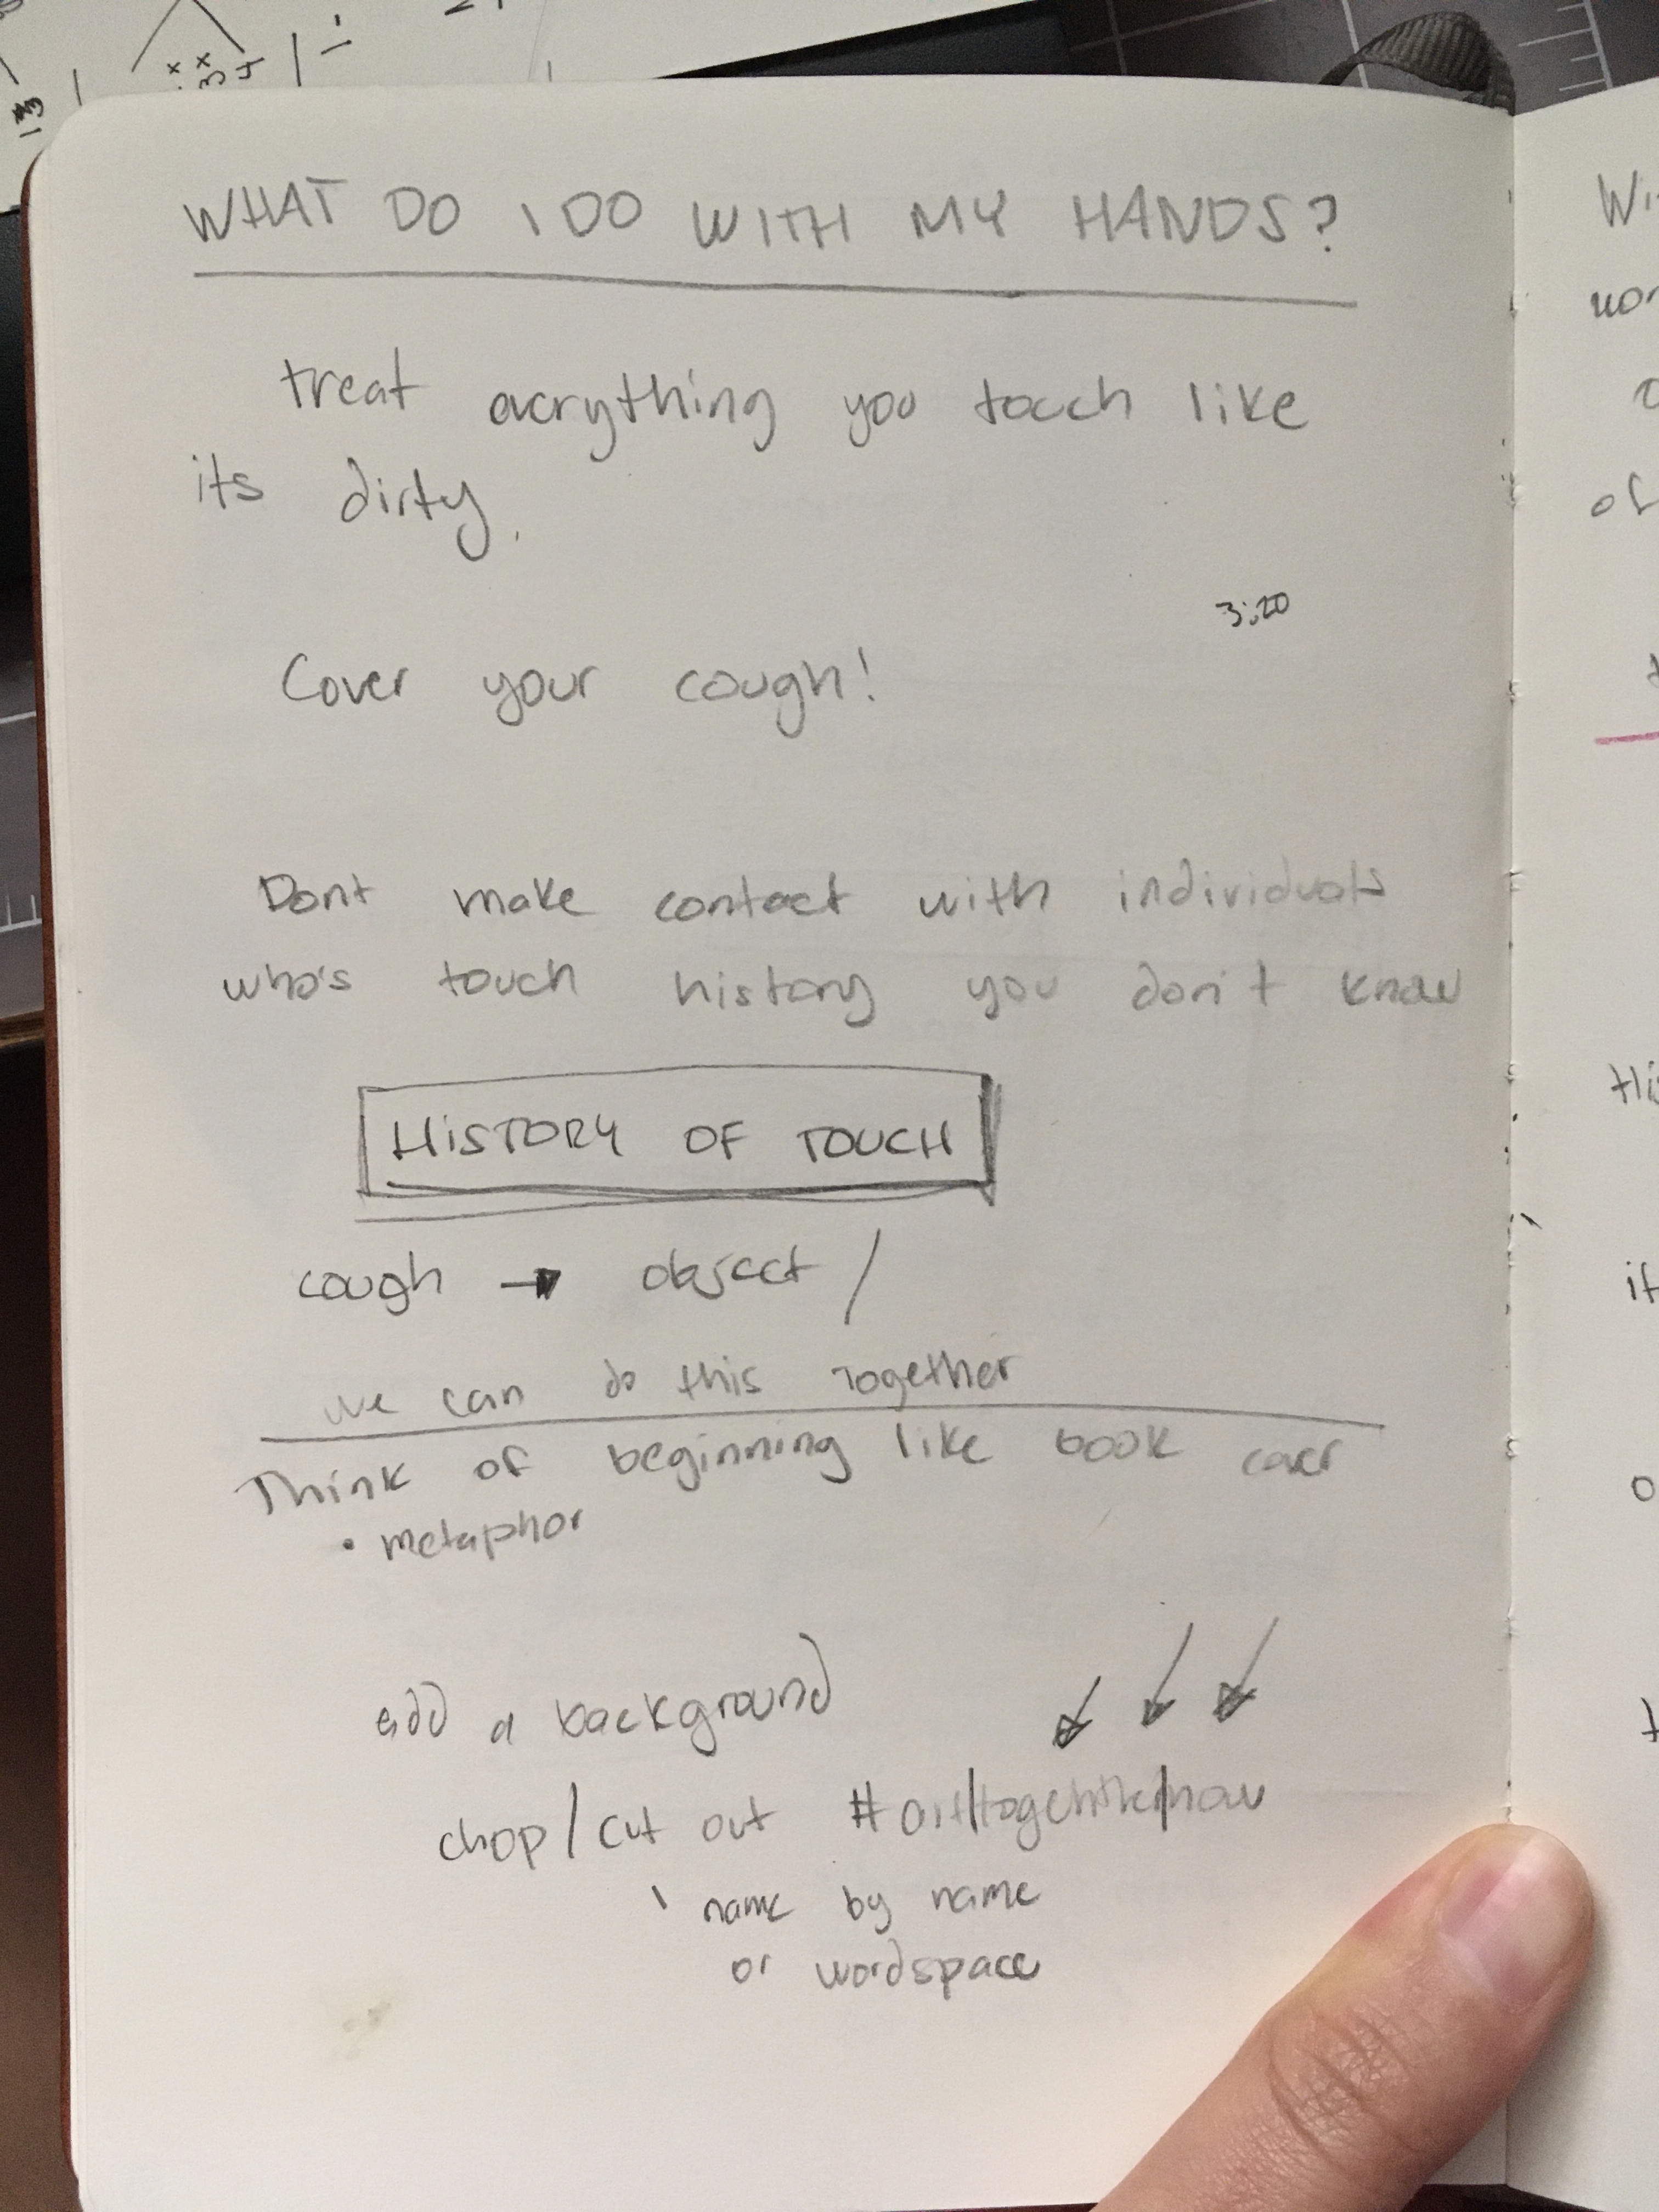 WHAT DO I DO WITH MY HANDS?
treat everything you touch like
its dirty.
3:20
Cover your cough!
Dont make contact with individuals
who's touch history you don't know
HISTORY OF TOUCH
cough → object /
we can do this Together
Think of beginning like book cover
• metaphor
add a background
chop/cut out #
name by name
or wordspace
Wi
wor
of
if